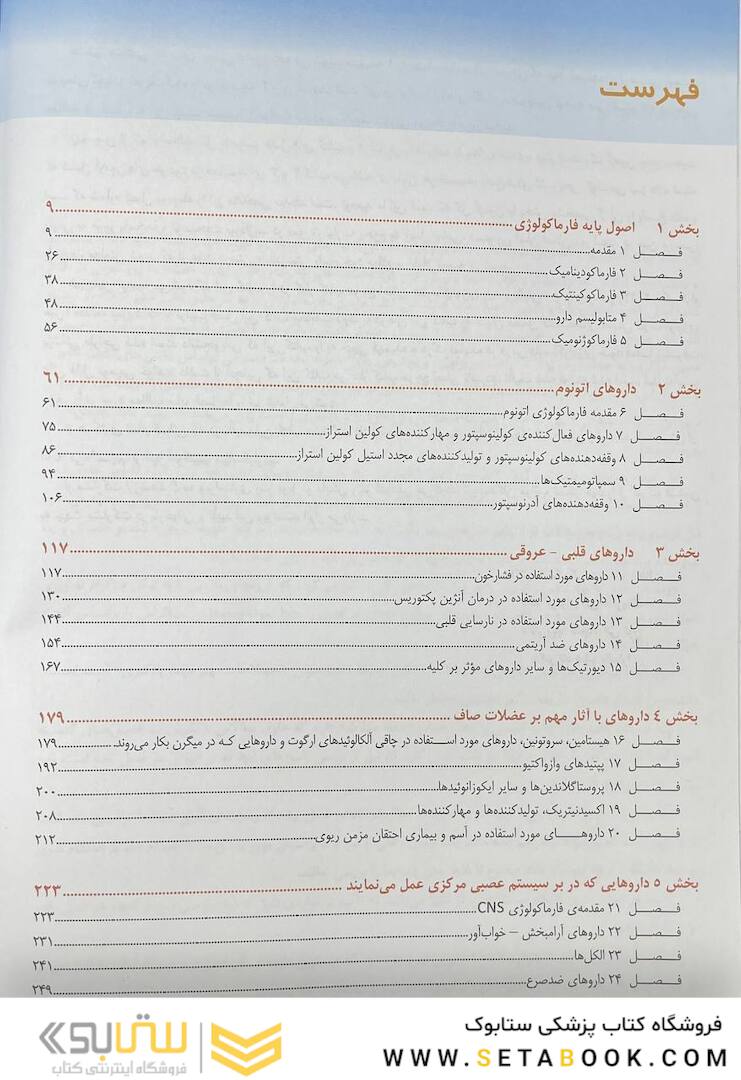 فهرست
بخش ۱ اصول پایه فارماکولوژی ۹
فـصــل ۱ مقدمه ۹
فـصــل ۲ فارماکودینامیک ۲۶
فـصــل ۳ فارماکوکینتیک ۳۸
فـصــل ۴ متابولیسم دارو ۴۸
فـصــل ۵ فارماکوژنومیک ۵۶
بخش ۲ داروهای اتونوم ۶۱
فـصــل ۶ مقدمه فارماکولوژی اتونوم ۶۱
فـصــل ۷ داروهای فعال‌کننده‌ی کولینوسپتور و مهارکننده‌های کولین استراز ۷۵
فـصــل ۸ وقفه‌دهنده‌های کولینوسپتور و تولیدکننده‌های مجدد استیل کولین استراز ۸۶
فـصــل ۹ سمپاتومیمتیک‌ها ۹۴
فـصــل ۱۰ وقفه‌دهنده‌های آدرنوسپتور ۱۰۶
بخش ۳ داروهای قلبی - عروقی ۱۱۷
فـصــل ۱۱ داروهای مورد استفاده در فشارخون ۱۱۷
فـصــل ۱۲ داروهای مورد استفاده در درمان آنژین پکتوریس ۱۳۰
فـصــل ۱۳ داروهای مورد استفاده در نارسایی قلبی ۱۴۴
فـصــل ۱۴ داروهای ضد آریتمی ۱۵۴
فـصــل ۱۵ دیورتیک‌ها و سایر داروهای مؤثر بر کلیه ۱۶۷
بخش ۴ داروهای با آثار مهم بر عضلات صاف ۱۷۹
فـصــل ۱۶ هیستامین، سروتونین، داروهای مورد اسـتفاده در چاقی آلکالوئیدهای ارگوت و داروهایی کـه در میگرن بکار می‌روند ۱۷۹
فـصــل ۱۷ پپتیدهای وازواکتیو ۱۹۲
فـصــل ۱۸ پروستاگلاندین‌ها و سایر ایکوزانوئیدها ۲۰۰
فـصــل ۱۹ اکسیدنیتریک، تولیدکننده‌ها و مهارکننده‌ها ۲۰۸
فـصــل ۲۰ داروهــای مورد استفاده در آسم و بیماری احتقان مزمن ریوی ۲۱۲
بخش ۵ داروهایی که در بر سیستم عصبی مرکزی عمل می‌نمایند ۲۲۳
فـصــل ۲۱ مقدمه‌ی فارماکولوژی CNS ۲۲۳
فـصــل ۲۲ داروهای آرامبخش – خواب‌آور ۲۳۱
فـصــل ۲۳ الکل‌ها ۲۴۱
فـصــل ۲۴ داروهای ضدصرع ۲۴۹
فروشگاه کتاب پزشکی ستابوک
WWW.SETABOOK.COM
ستابوک
فروشگاه اینترنتی کتاب